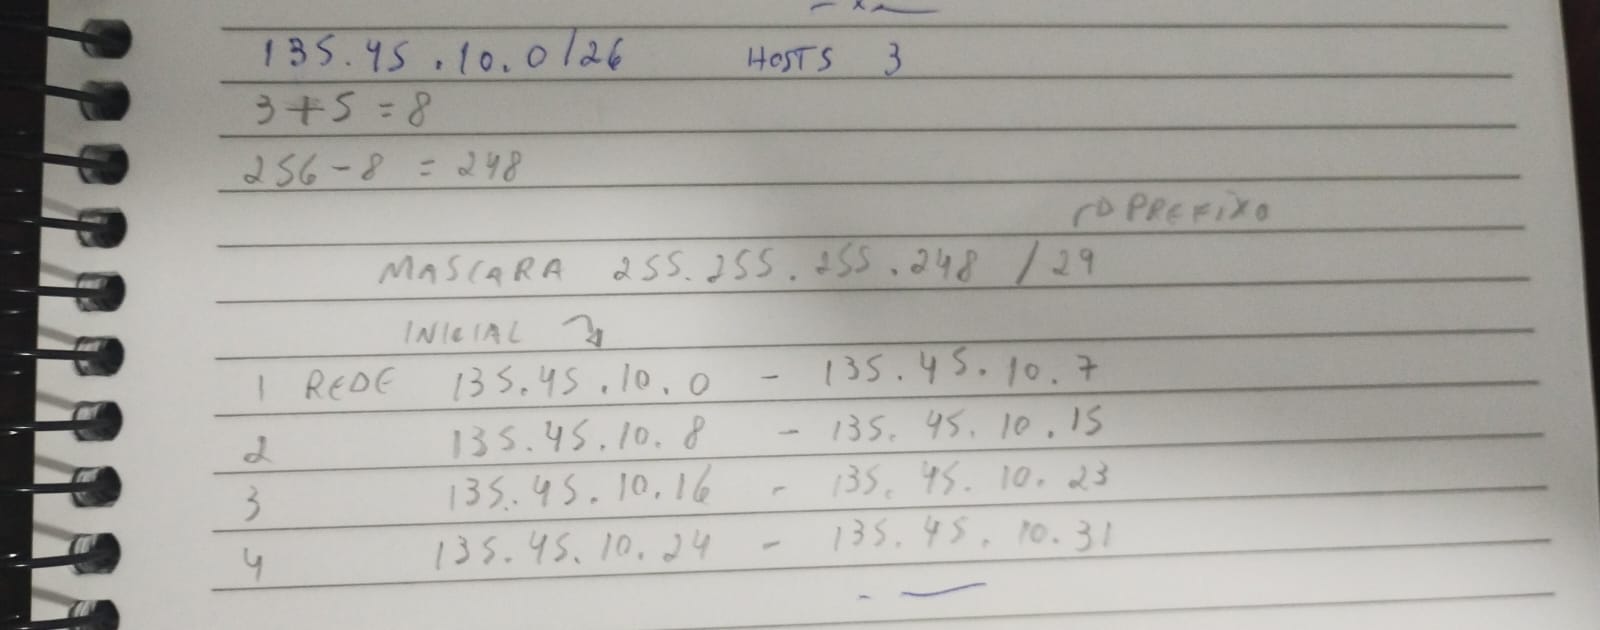 135.45.10.0/26 HOSTS 3
3+5=8
256-8 = 248
PREFIXO
MASCARA 255.255.255.248 /29
INICIAL
1 REDE 135.45.10.0 - 135.45.10.7
2 135.45.10.8 - 135.45.10.15
3 135.45.10.16 - 135.45.10.23
4 135.45.10.24 - 135.45.10.31